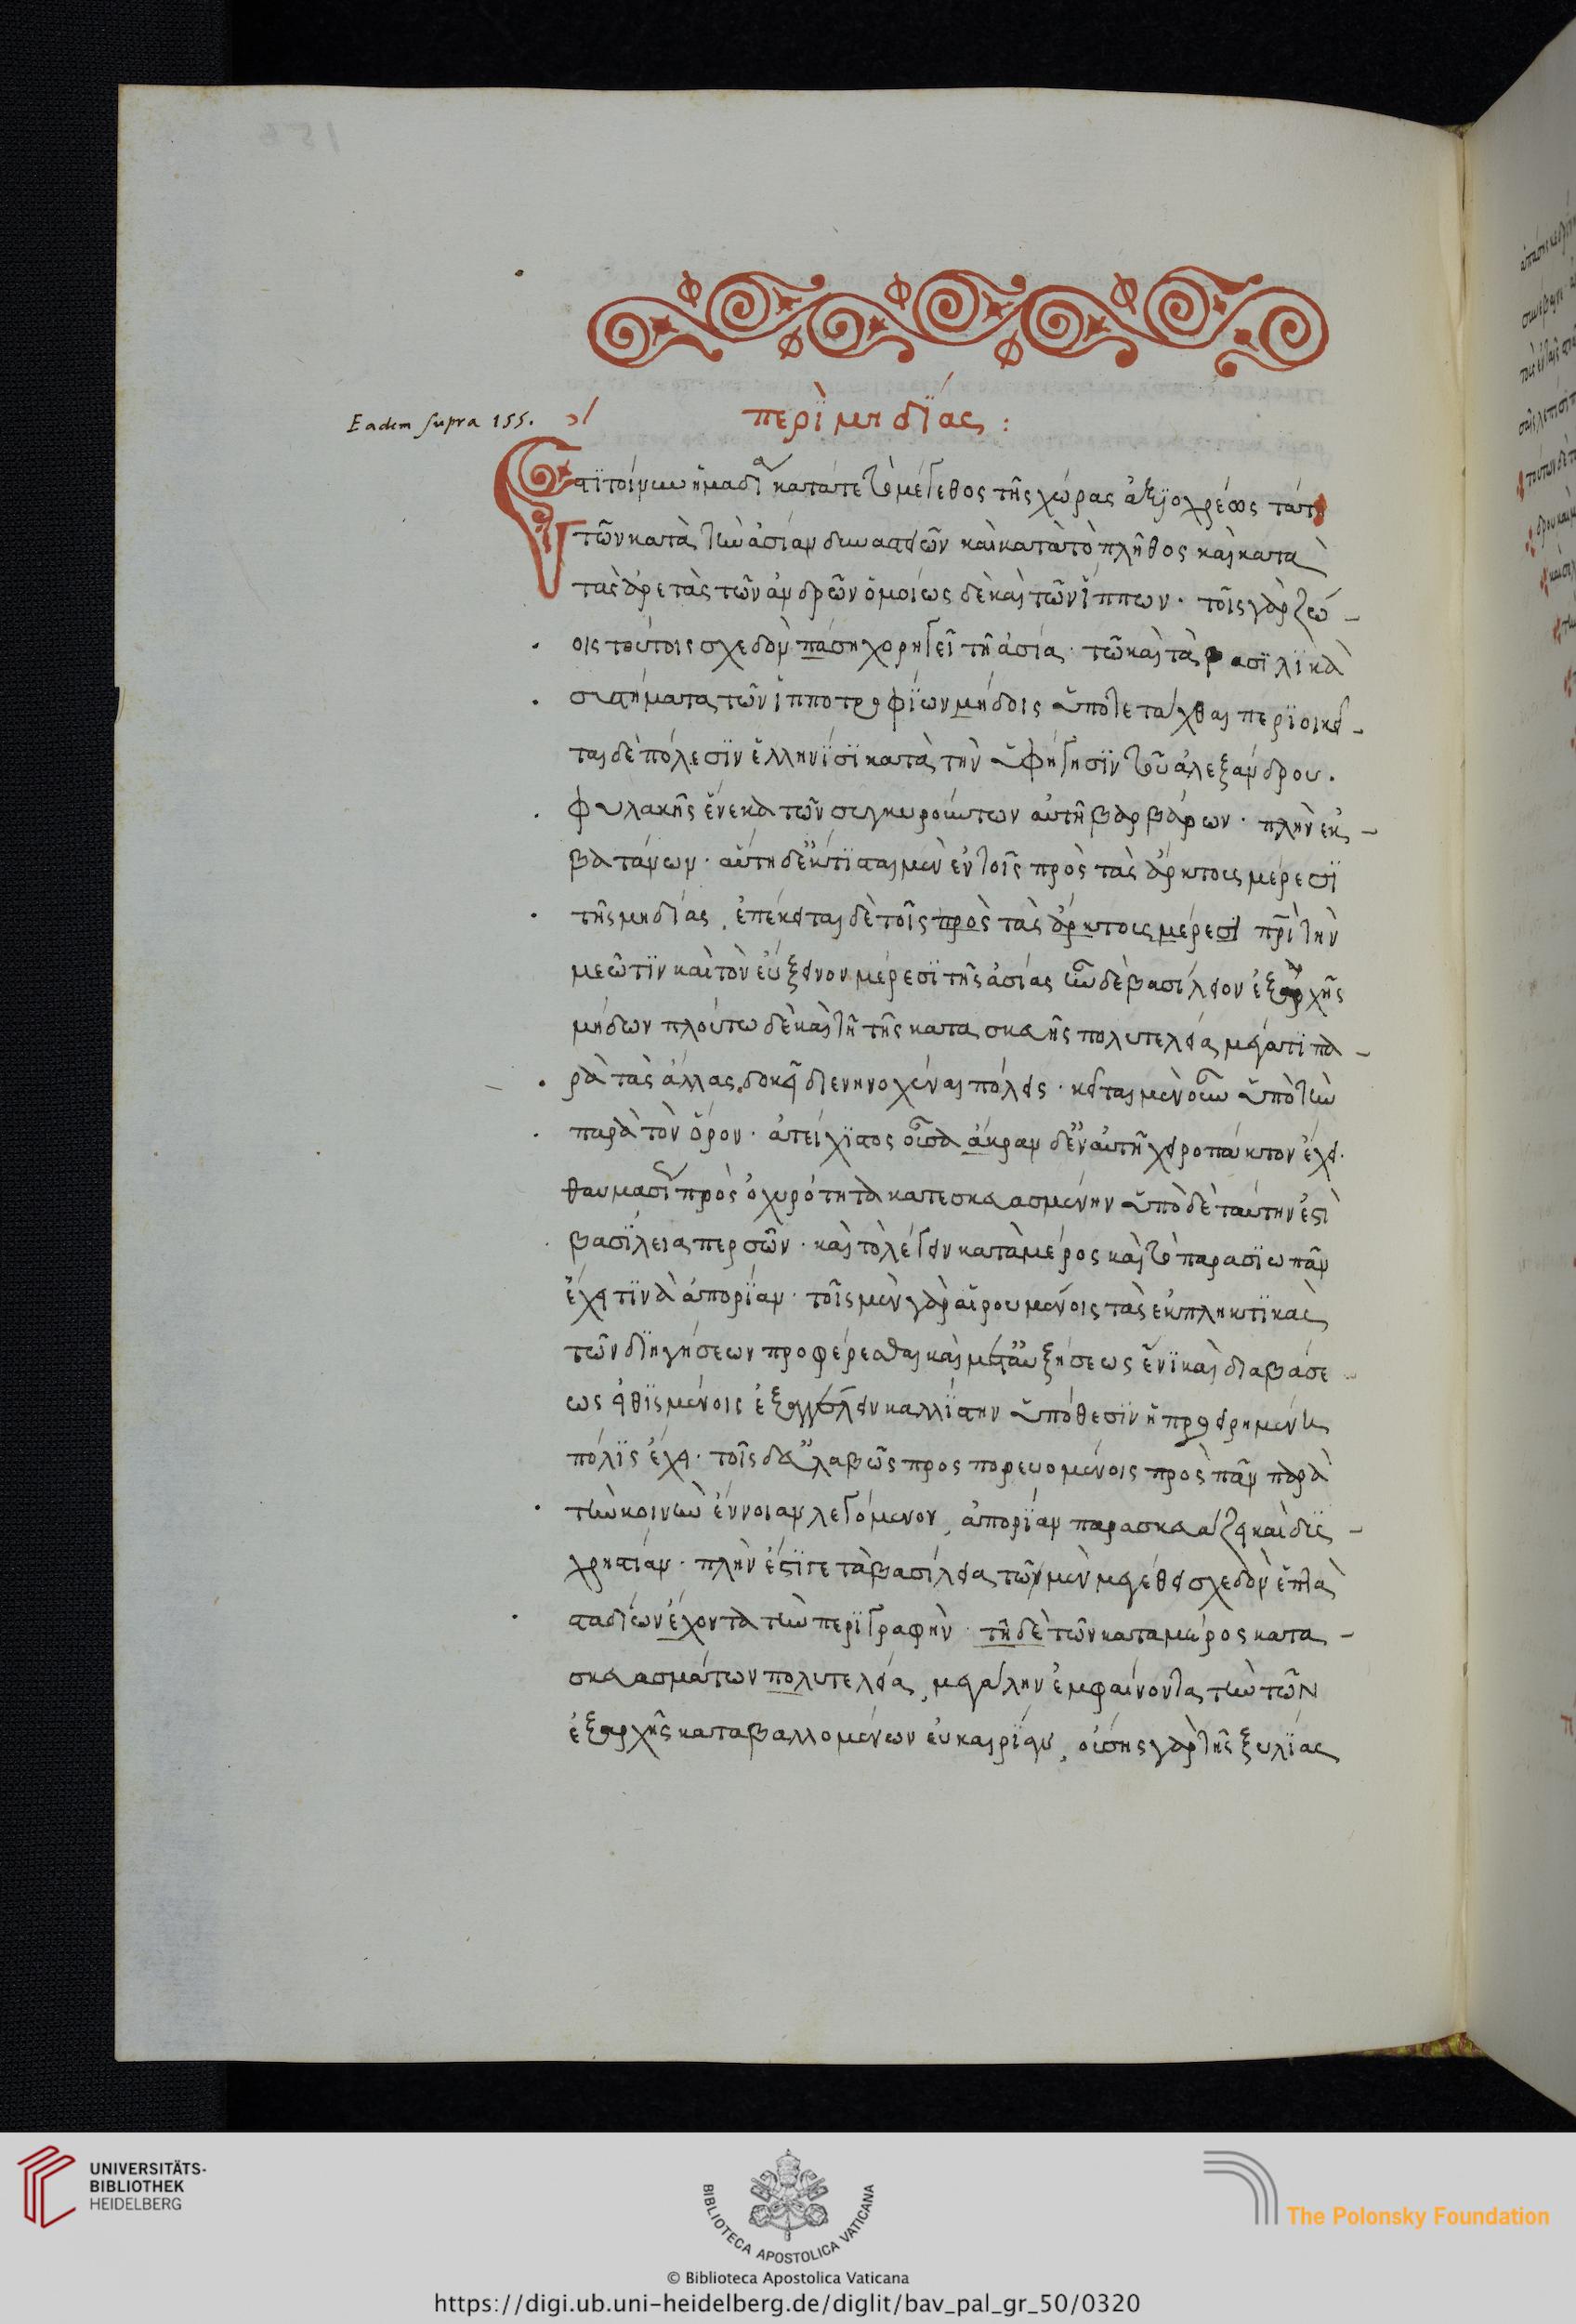 Eadem supra 155.
περὶ μηδίας:
Ἐστὶ τοίνυν ἡ μηδία κατά τε τὸ μέγεθος τῆς χώρας ἀξιόχρεως
τῶν κατὰ τὴν ἀσίαν δυναστειῶν καὶ κατὰ τὸ πλῆθος καὶ κατὰ
τὰς ἀρετὰς τῶν ἀνδρῶν ὁμοίως δὲ καὶ τῶν ἵππων· τοῖς γὰρ ζώ-
οις τούτοις σχεδὸν πάσῃ χορηγεῖ τῇ ἀσίᾳ· τῶ καὶ τὰ βασιλικὰ
συστήματα τῶν ἱπποτροφίων μήδοις ἐπιτετάχθαι περιοικεῖ-
ται δὲ πόλεσιν ἑλληνίσι κατὰ τὴν ὑφήγησιν τοῦ ἀλεξάνδρου.
φυλακῆς ἕνεκα τῶν συγκυρούντων αὐτῇ βαρβάρων· πλὴν ἐκ-
βατάνων· αὕτη δ' ἔκτισται μὲν ἐν τοῖς πρὸς τὰς ἄρκτους μέρεσι
τῆς μηδίας, ἐπίκειται δὲ τοῖς πρὸς τὰς ἄρκτους μέρεσι περὶ τὴν
μεῶτιν καὶ τὸν εὔξεινον μέρεσι τῆς ἀσίας ἦν δὲ βασίλειον ἐξ ἀρχῆς
μήδων πλούτω δὲ καὶ τῇ τῆς κατασκευῆς πολυτελείᾳ μέγα τι πα-
ρὰ τὰς ἄλλας δοκεῖ διενηνοχέναι πόλεις· κεῖται μὲν οὖν ὑπὸ τὴν
παρὰ τὸν ὄρον· ἀτείχιστος οὖσα ἄκραν δ' ἐν αὐτῇ χειροποίητον ἔχει·
θαυμασίως πρὸς ὀχυρότητα κατεσκευασμένην ὑπὸ δὲ ταύτην ἐστὶ
βασίλεια περσῶν· καὶ τὸ λέγειν κατὰ μέρος καὶ τὸ παρασιωπᾶν
ἔχει τινὰ ἀπορίαν· τοῖς μὲν γὰρ αἱρουμένοις τὰς ἐκπληκτικὰς
τῶν διηγήσεων προφέρεσθαι καὶ μετ' αὐξήσεως ἔνι καὶ διαβάσε
ως εἰθισμένοις ἐξαγγέλλειν καλλίστην ὑπόθεσιν ἡ προειρημένη
πόλις ἔχει· τοῖς δ' εὐλαβῶς προσπορευομένοις πρὸς πᾶν παρὰ
τὴν κοινὴν ἔννοιαν λεγόμενον, ἀπορίαν παρασκευάζει καὶ δυσ-
χρηστίαν· πλὴν ἔστι γε τὰ βασίλεια τῶν μὲν μεγέθει σχεδὸν ἑπτὰ
σταδίων ἔχοντα τὴν περιγραφὴν· τῇ δὲ τῶν κατὰ μέρος κατα-
σκευασμάτων πολυτελείᾳ, μεγάλην ἐμφαίνοντα τὴν τῶν
ἐξ ἀρχῆς καταβαλλομένων εὐκαιρίαν, οὔσης γὰρ τῆς ξυλίας
UNIVERSITÄTS-
BIBLIOTHEK
HEIDELBERG
BIBLIOTECA APOSTOLICA VATICANA
The Polonsky Foundation
© Biblioteca Apostolica Vaticana
https://digi.ub.uni-heidelberg.de/diglit/bav_pal_gr_50/0320